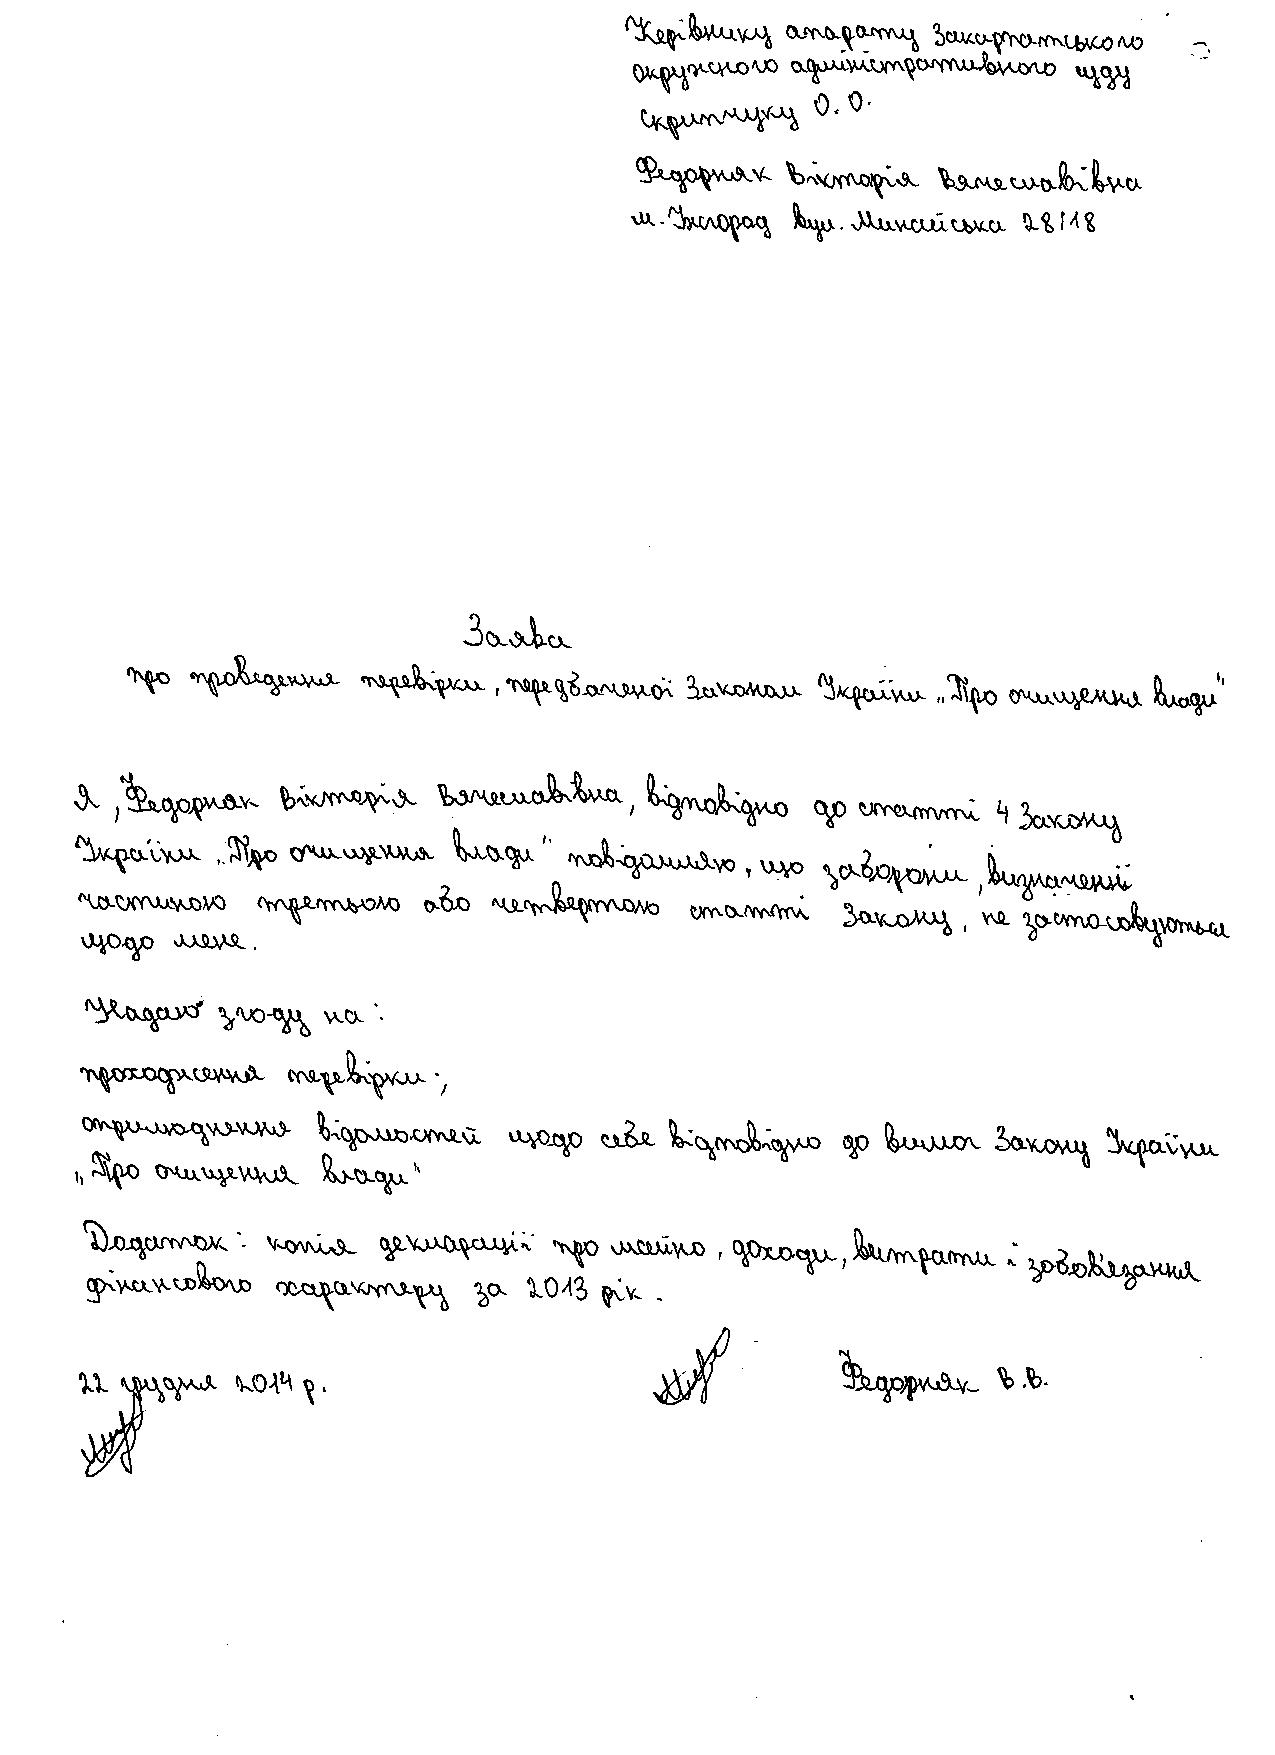 Керівнику апарату Закарпатського
окружного адміністративного суду
Скрипчуку О. О.
Федорняк Вікторія Вячеславівна
м. Ужгород вул. Минайська 28/18
Заява
про проведення перевірки, передбаченої Законом України „Про очищення влади"
Я, Федорняк Вікторія Вячеславівна, відповідно до статті 4 Закону
України „Про очищення влади" повідомляю, що заборони, визначенні
частиною третьою або четвертою статті Закону, не застосовуються
щодо мене.
Надаю згоду на:
проходження перевірки;
оприлюднення відомостей щодо себе відповідно до вимог Закону України
„Про очищення влади"
Додаток: копія декларації про майно, доходи, витрати і зобов'язання
фінансового характеру за 2013 рік.
22 грудня 2014 р. Федорняк В.В.